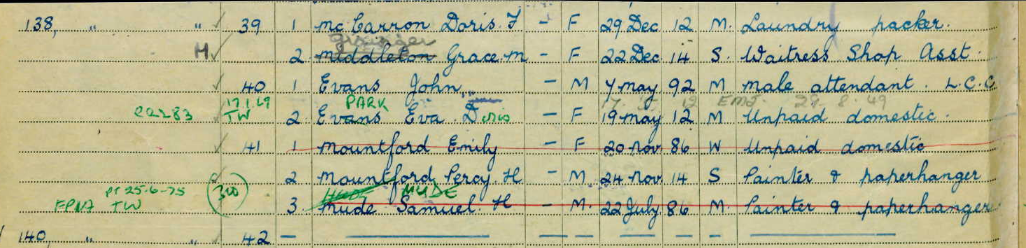 138, " 39 1 McCarron Doris F - F 29 Dec 12 M. Laundry packer.
H 2 Middleton Grace M - F 22 Dec 14 S. Waitress Shop Asst
40 1 Evans John - M 4 May 92 M Male attendant. L.C.C
PARK
22283 17.1.69 TW 2 Evans Eva Doris - F 19 May 12 M Unpaid domestic.
41 1 Mountford Emily - F 20 Nov. 86 W Unpaid domestic
2 Mountford Percy H - M. 24 Nov. 14 S Painter & paperhanger
PT 25-6-75 MUDE
FPNA TW 3 Mude Samuel H - M. 22 July 86 M. Painter & paperhanger
140, " 42 -